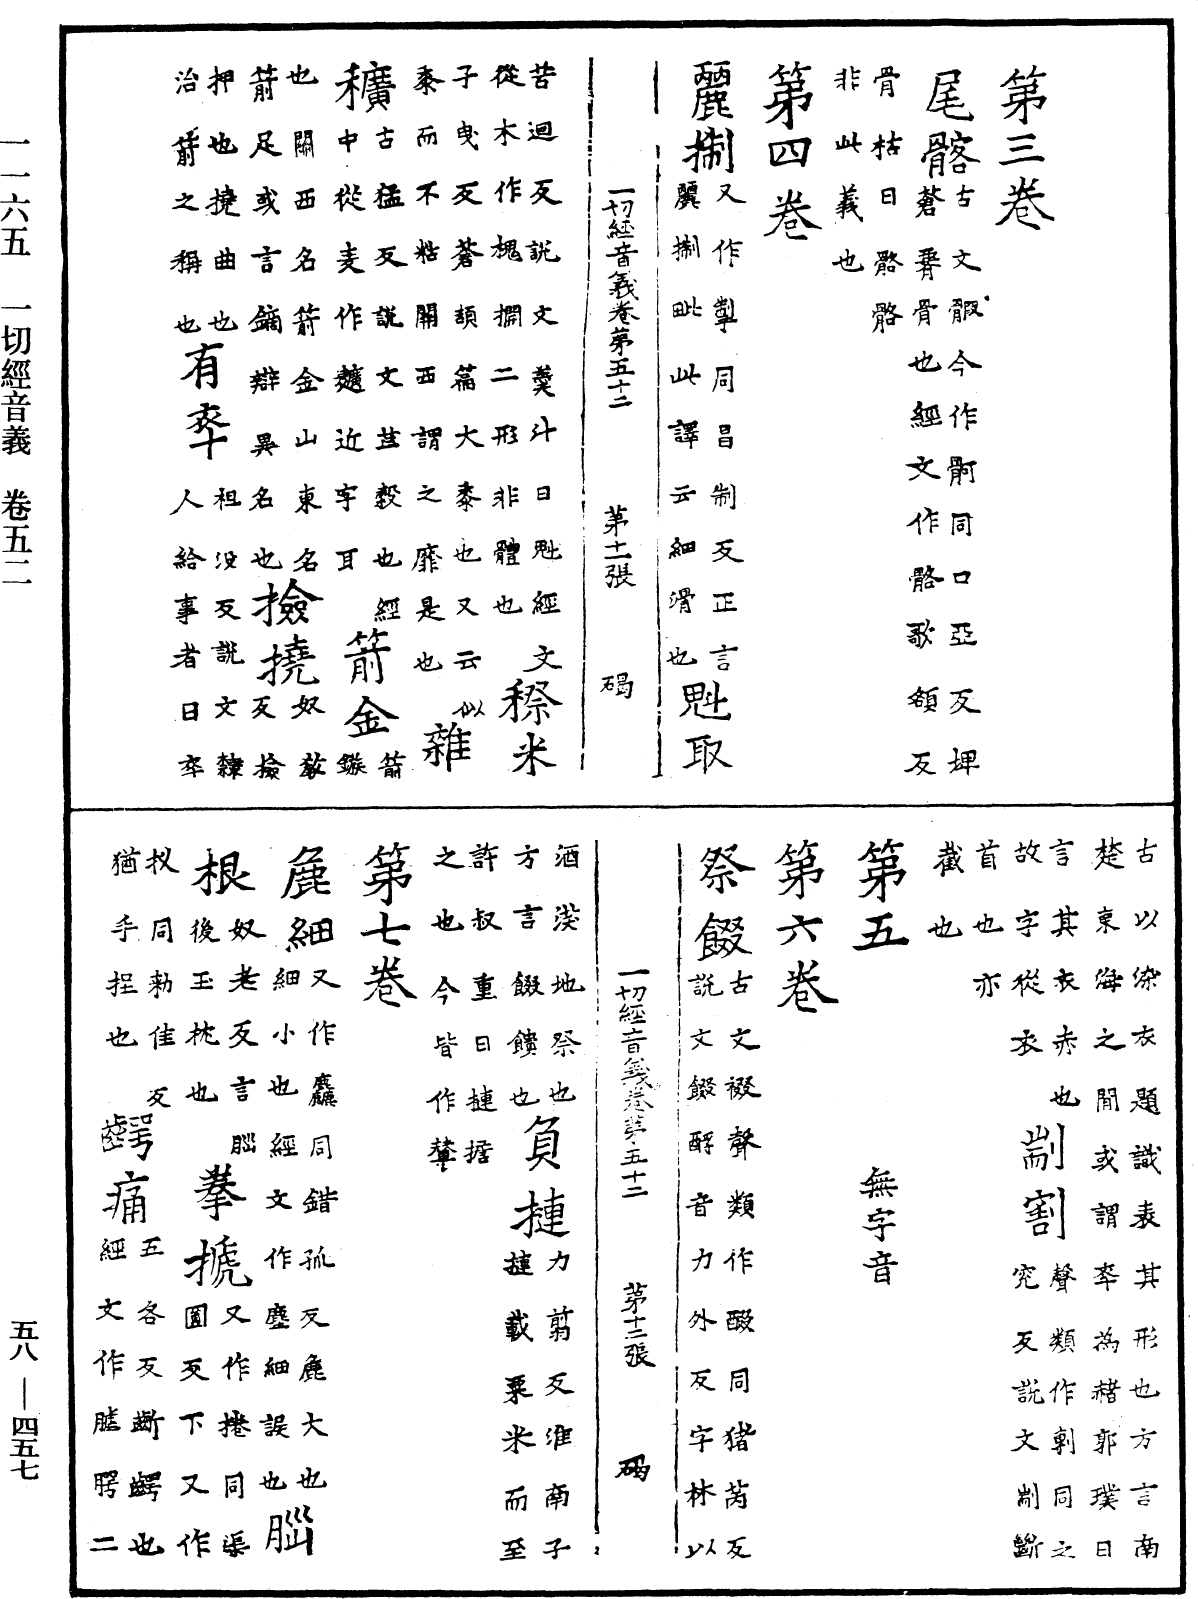 第三卷
尾髂古文䯊今作䯊同口亞反埤
蒼髂骨也經文作骼歌頟反
骨枯曰骼骼
非此義也
第四卷
麗掣又作㨖同昌制反正言
麗掣毗此譯云細滑也
魁取
一切經音義卷第五十二 第十一張 碣
苦迴反說文羹斗曰魁經文
從木作槐櫚二形非體也
穄米
子曳反蒼頡篇大黍也又云似
黍而不粘關西謂之䵚是也
雜
穬古猛反說文芒穀也經
中從麦作䵃近字耳
箭金
箭鏃
也關西名箭金山東名
箭足或言鏑辯異名也
撿撓
奴教反撿
押也撓曲也
治箭之稱也
有卒
祖沒反說文隸
人給事者曰卒
古以染衣題識表其形也方言南
楚東海之間或謂卒為赭郭璞曰
言其衣赤也
故字從衣
剬割聲類作剸同之
究反說文剬斷
首也亦
截也
第五 無字音
第六卷
祭餟古文裰聲類作醊同猪芮反
說文餟酹音力外反字林以
一切經音義卷第五十二 第十二張 碣
酒澆地祭也
方言餟饋也
負摙力剪反淮南子
摙載粟米而至
許叔重曰摙擔
之也今皆作輦
第七卷
麁細又作麤同錯孤反麁大也
細小也經文作塵細誤也
腦
根奴老反言腦
後玉枕也
拳搋又作捲同渠
圓反下又作
扠同勑佳反
猶手捏也
齶痛五各反齗齶也
經文作䐈腭二